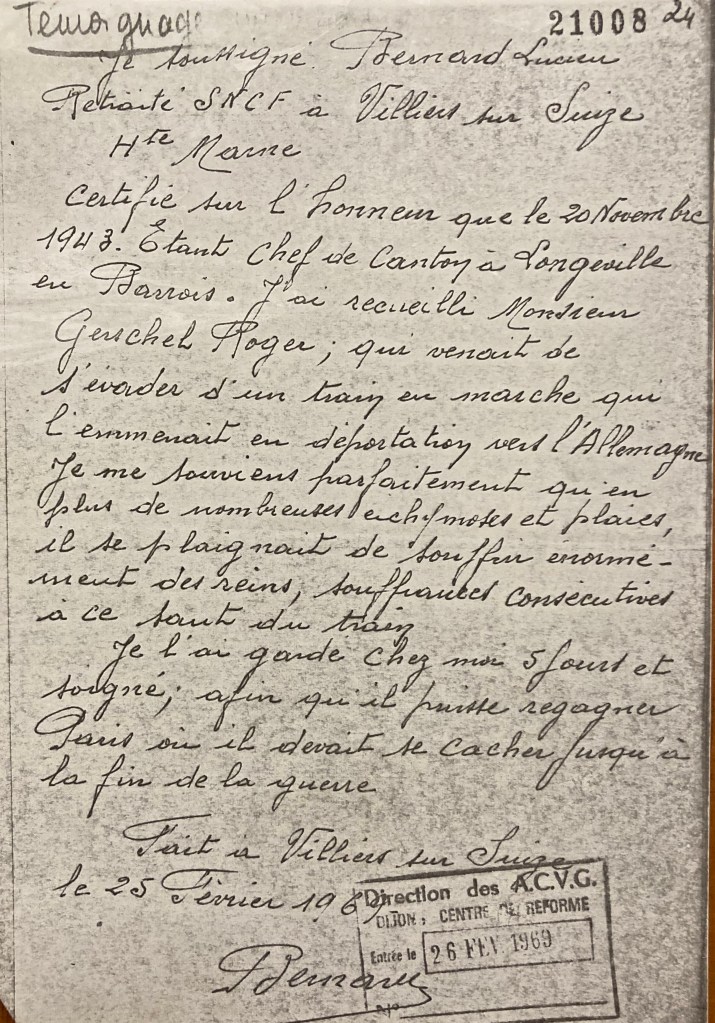 Témoignage
21008 24
Je soussigné Bernard Lucien
Retraité SNCF à Villiers sur Suize
Hte Marne
Certifie sur l'honneur que le 20 Novembre
1943. Étant Chef de Canton à Longeville
en Barrois. J'ai recueilli Monsieur
Gerschel Roger ; qui venait de
s'évader d'un train en marche qui
l'emmenait en déportation vers l'Allemagne
Je me souviens parfaitement qu'en
plus de nombreuses echymoses et plaies,
il se plaignait de souffrir énormé-
ment des reins, souffrances consécutives
à ce saut du train
Je l'ai gardé chez moi 5 jours et
soigné ; afin qu'il puisse regagner
Paris où il devait se cacher jusqu'à
la fin de la guerre
Fait à Villiers sur Suize
le 25 Février 1969
Direction des A.C.V.G.
DIJON, CENTRE DE REFORME
Entrée le 26 FEV 1969
N°
Bernard